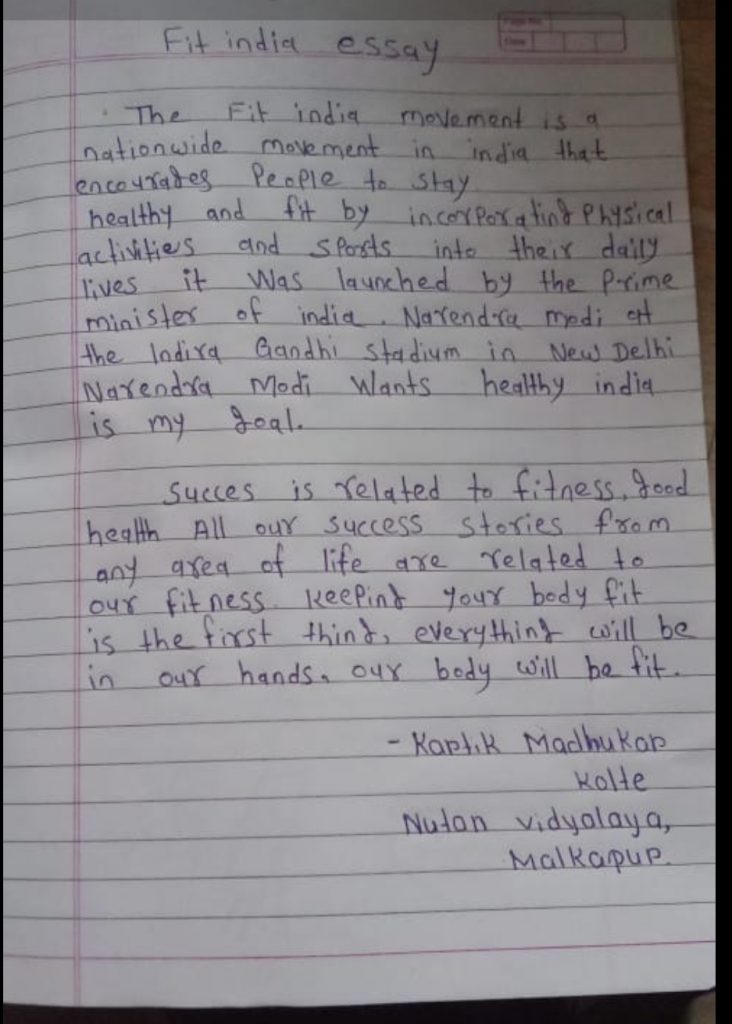 Page No.
Date
Fit india essay
The Fit india movement is a
nationwide movement in india that
encourages People to stay
healthy and fit by incorporating Physical
activities and sports into their daily
lives it was launched by the Prime
minister of india. Narendra modi at
the Indira Gandhi stadium in New Delhi
Narendra Modi wants healthy india
is my goal.
Succes is related to fitness, good
health All our success stories from
any area of life are related to
our fitness. Keeping your body fit
is the first thing, everything will be
in our hands. our body will be fit.
- Kartik Madhukar
Kolte
Nutan vidyalaya,
Malkapur.